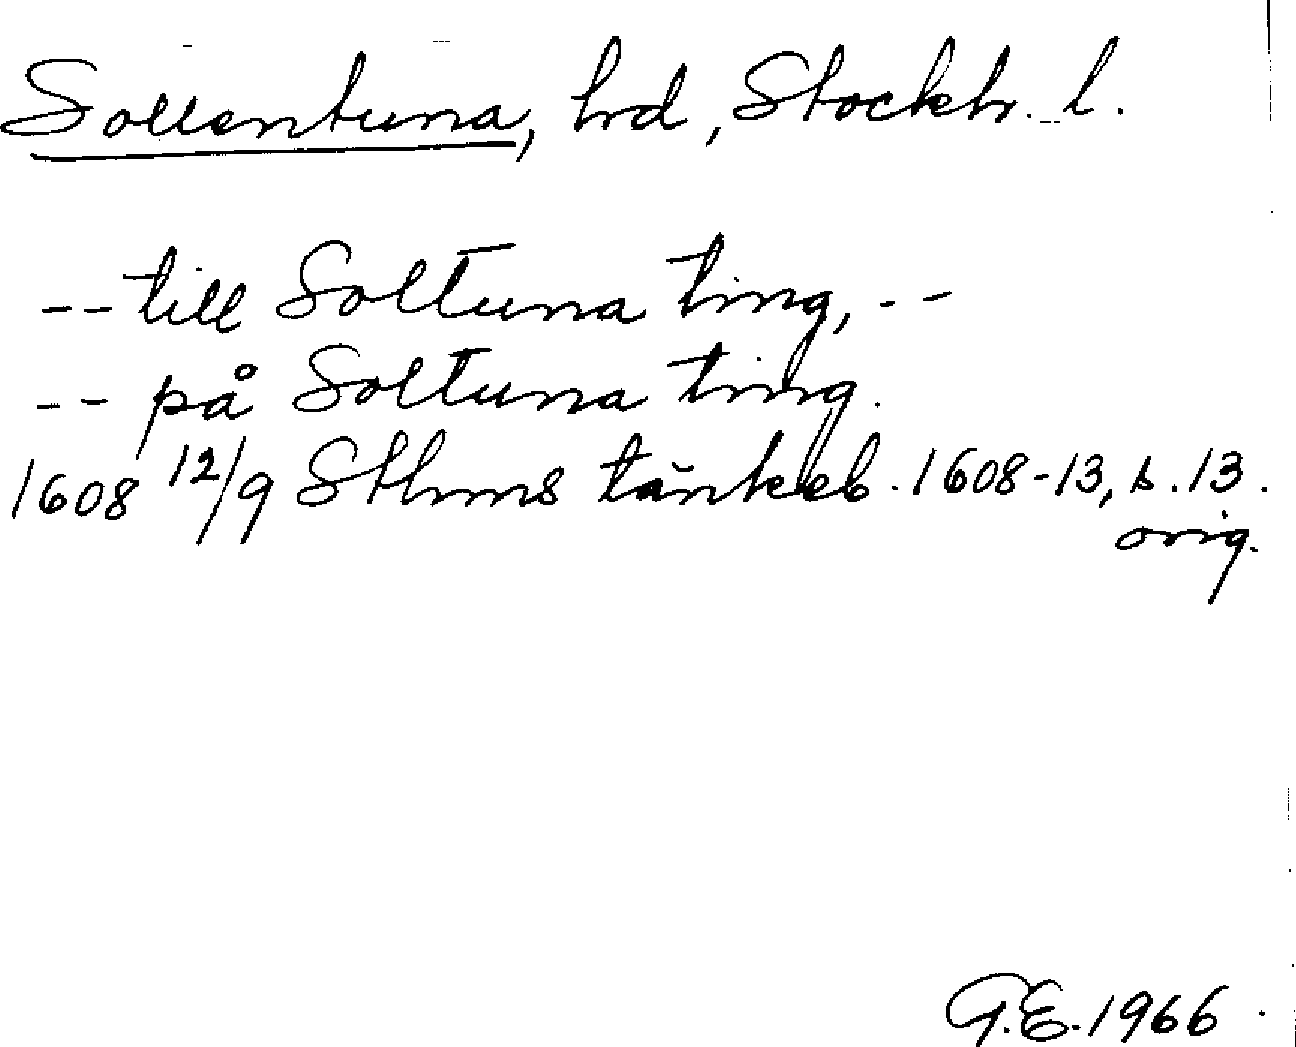 Sollentuna, hrd, Stockh. l.
-- till Soltuna ting, --
-- på Soltuna ting.
1608 12/9 Sthms tänkeb. 1608-13, s. 13.
orig.
G.E. 1966